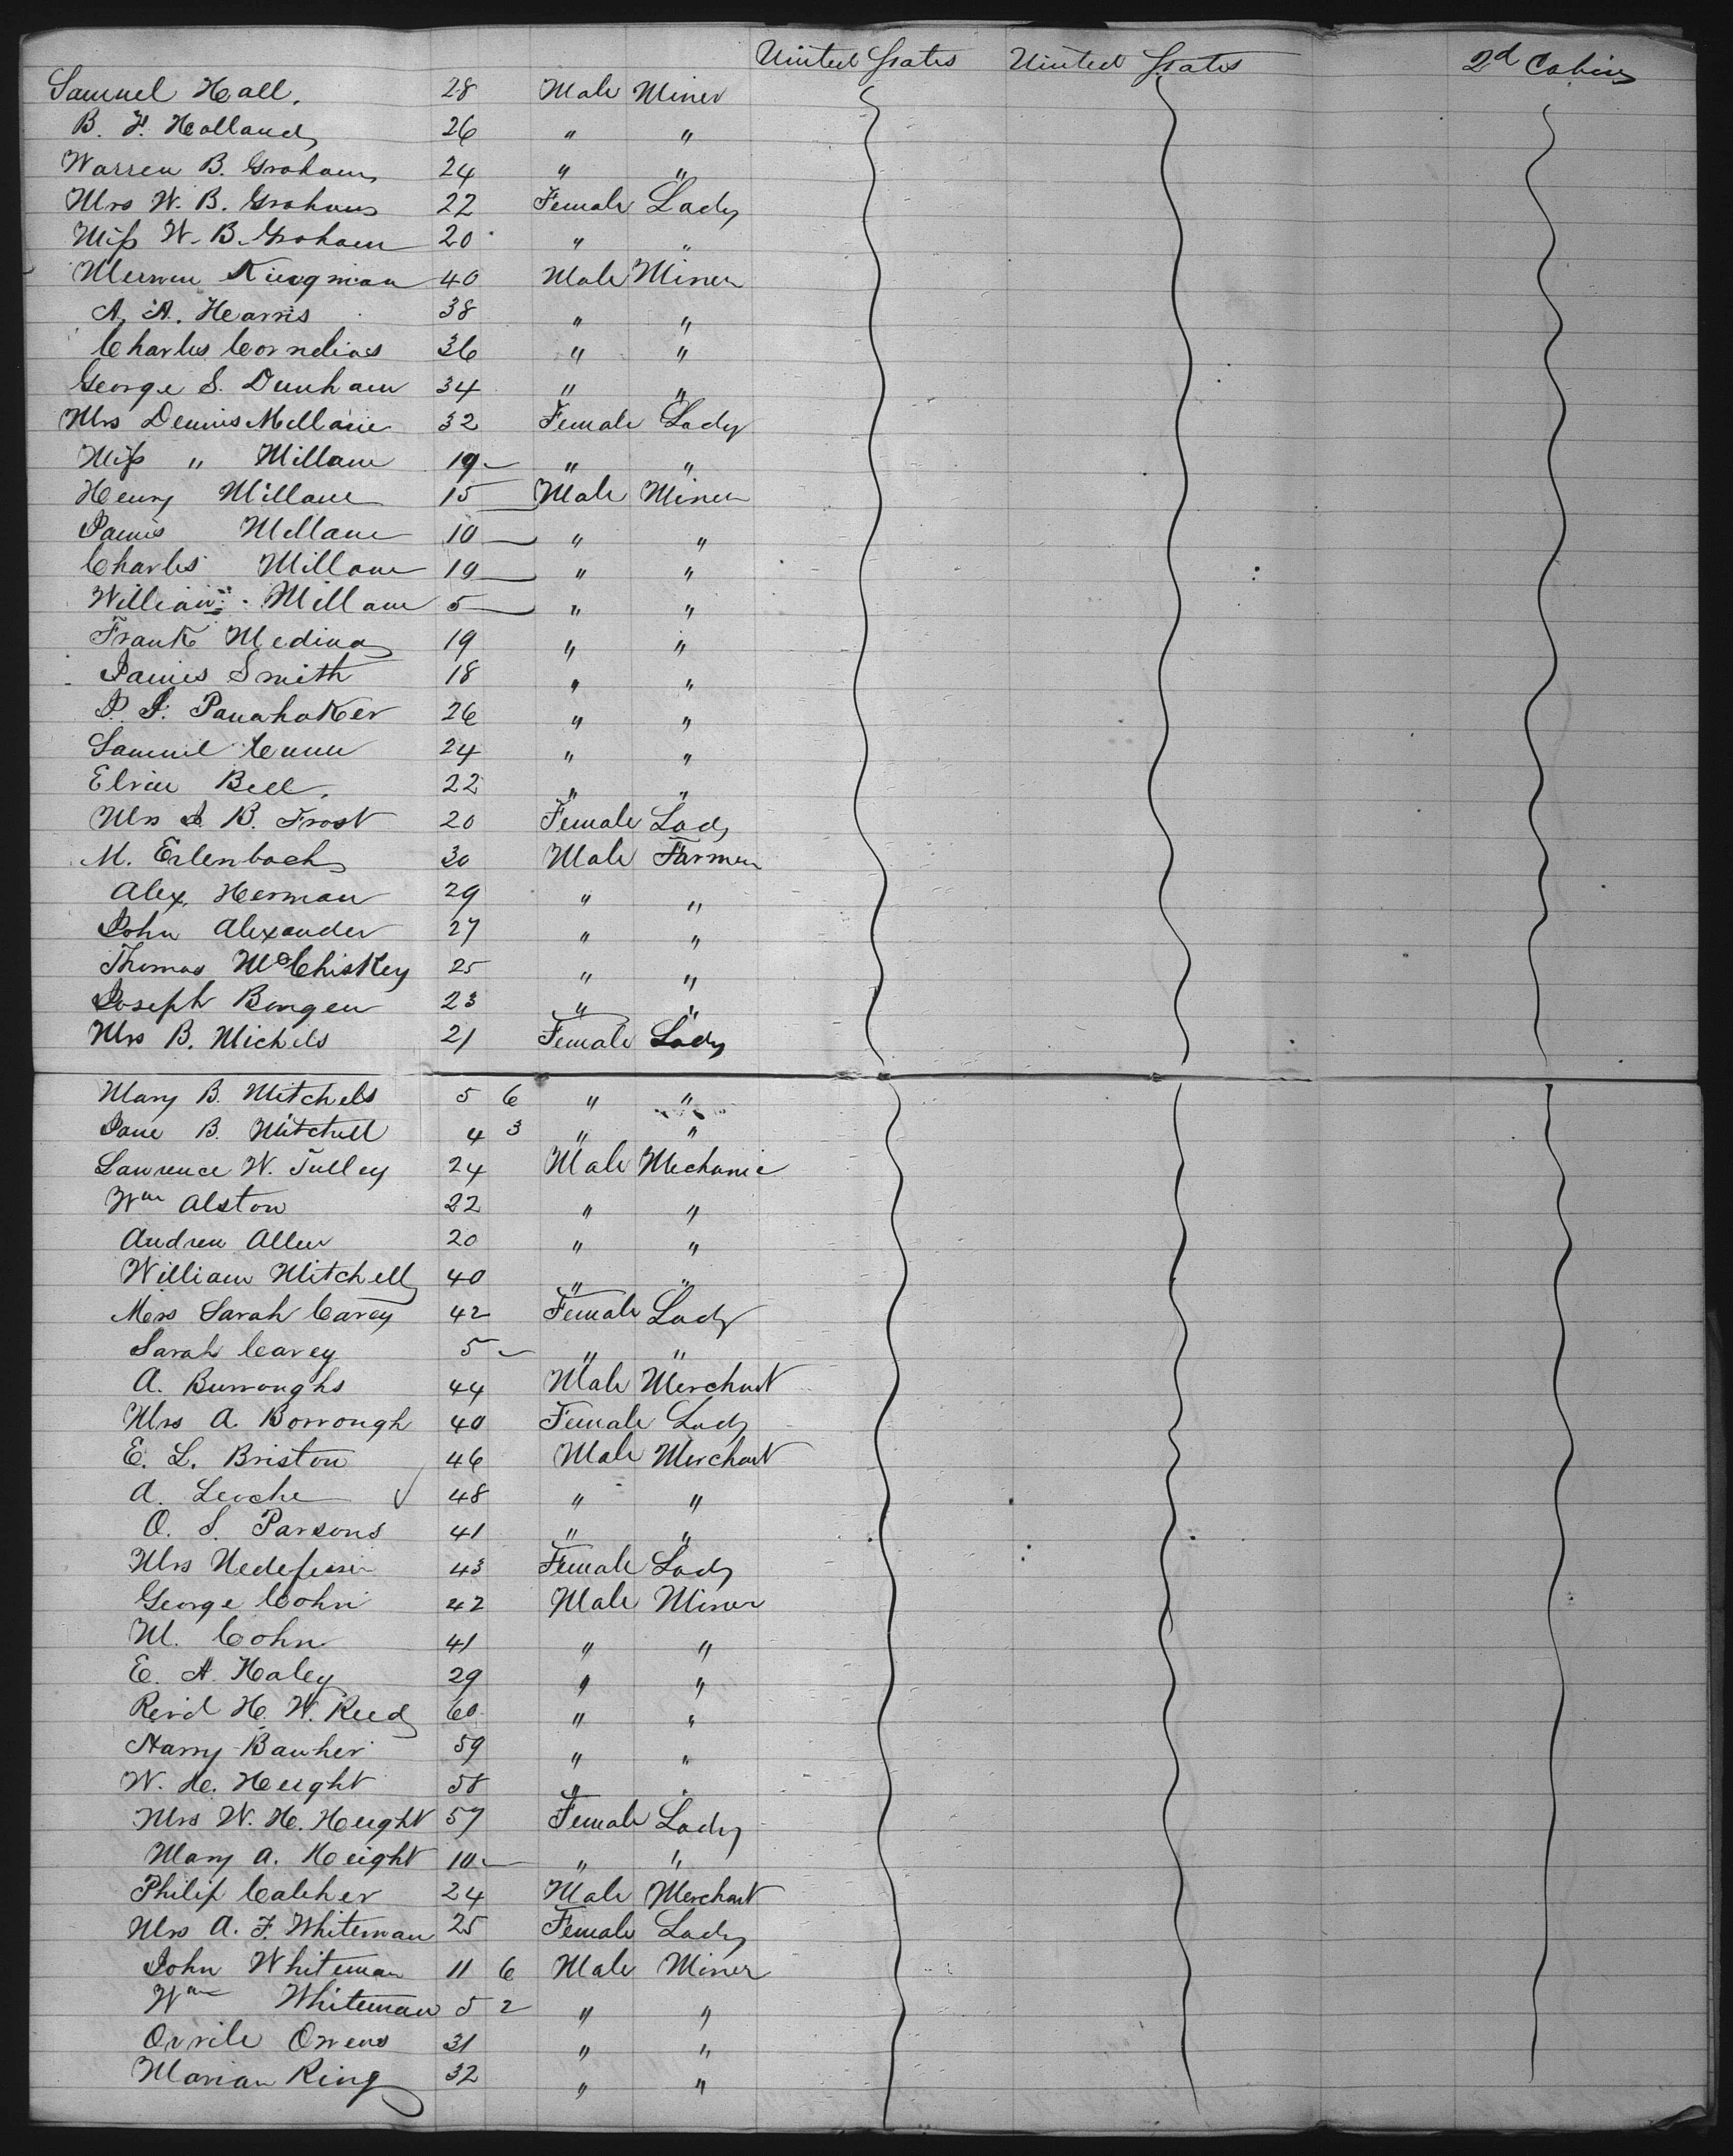 United States United States 2d Cabin
Samuel Hall. 28 Male Miner
B. F. Holland 26 " "
Warren B. Graham 24 " "
Mrs W. B. Graham 22 Female Lady
Miss W. B. Graham 20 " "
Kingman 40 Male Miner
A. A. Hearris 38 " "
Charles Cornelius 36 " "
George S. Dunham 34 " "
Mrs Dennis Mellane 32 Female Lady
Miss " Millane 19 " "
Henry Millane 15 Male Miner
James Mellane 10 " "
Charles Millane 19 " "
William Millane 5 " "
Frank Medina 19 " "
James Smith 18 " "
26 " "
Samuel 24 " "
Elvin Bell. 22 " "
Mrs J. B. Frost 20 Female Lady
M. Erlenbach 30 Male Farmer
Alex. Herman 29 " "
John Alexander 27 " "
Thomas McChiskey 25 " "
Joseph Bongen 23 " "
Mrs B. Michels 21 Female Lady
Mary B. Mitchels 5 6 " "
Jane B. Mitchell 4 3 " "
Lawrence W. Tulley 24 Male Mechanic
Wm Alston 22 " "
Andrew Allen 20 " "
William Mitchell 40 " "
Mrs Sarah Carey 42 Female Lady
Sarah Carey 5 " "
A. Burroughs 44 Male Merchant
Mrs A. Borrough 40 Female Lady
E. L. Briston 46 Male Merchant
A. Leoche 48 " "
O. S. Parsons 41 " "
Mrs 43 Female Lady
George Cohn 42 Male Miner
M. Cohn 41 " "
E. A. Haley 29 " "
Revd H. W. Reed 60 " "
Harry Bauher 59 " "
W. H. Height 58 " "
Mrs W. H. Height 57 Female Lady
Mary A. Height 10 " "
Philip Calcher 24 Male Merchant
Mrs A. F. Whiteman 25 Female Lady
John Whiteman 11 6 Male Miner
Wm Whiteman 5 2 " "
Orvile Owens 31 " "
Marian King 32 " "